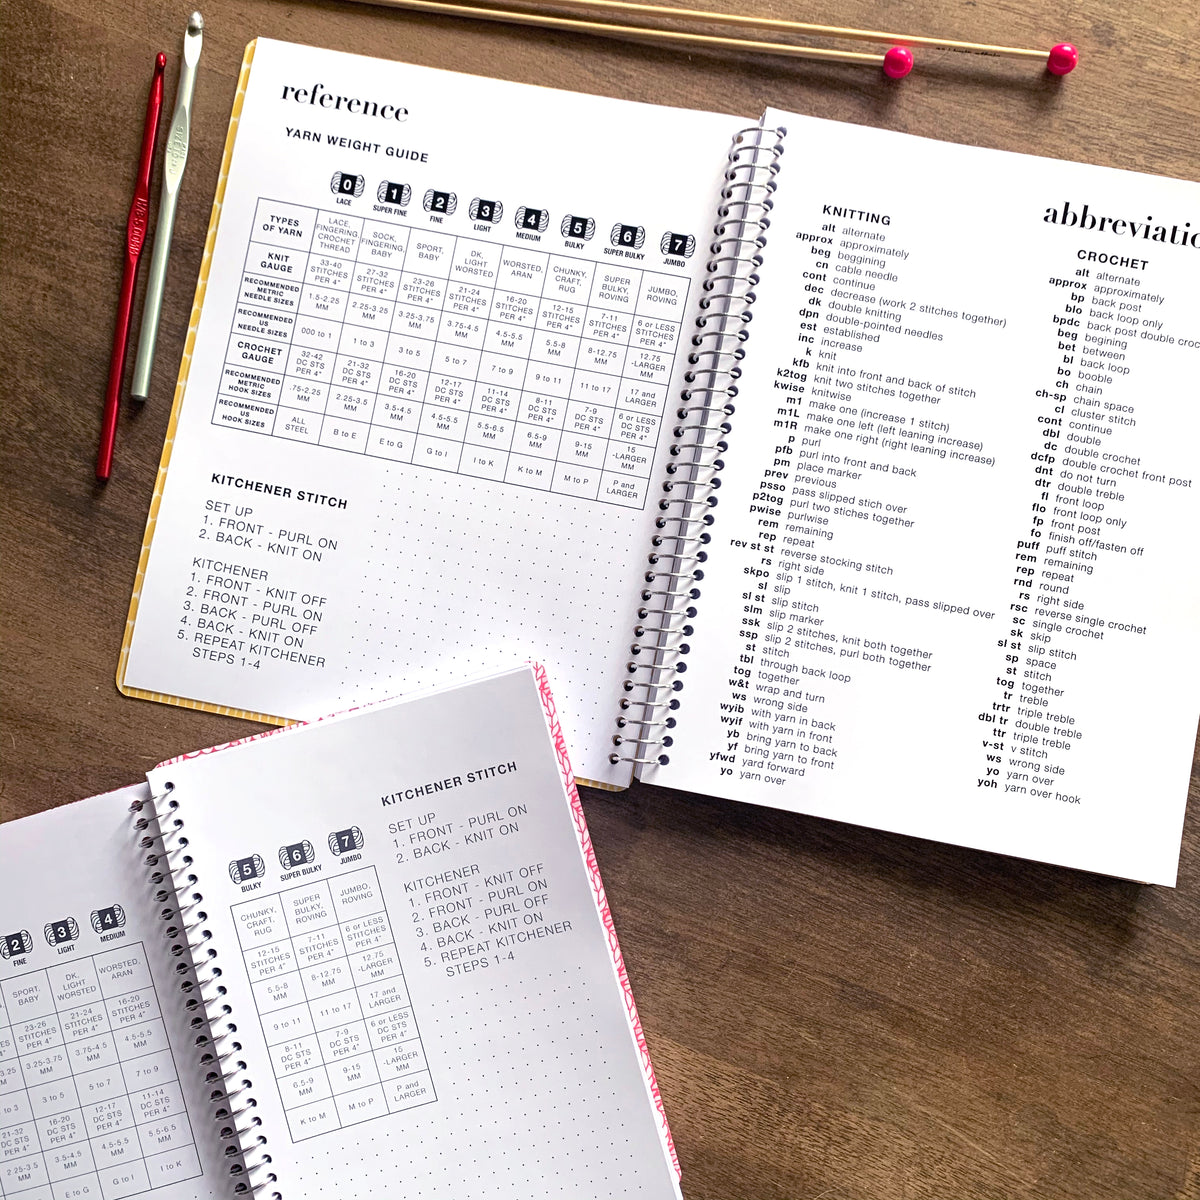 reference
YARN WEIGHT GUIDE
0 1 2 3 4 5 6 7
LACE SUPER FINE FINE LIGHT MEDIUM BULKY SUPER BULKY JUMBO
TYPES OF YARN LACE, FINGERING, CROCHET THREAD SOCK, FINGERING, BABY SPORT, BABY DK, LIGHT WORSTED WORSTED, ARAN CHUNKY, CRAFT, RUG SUPER BULKY, ROVING JUMBO, ROVING
KNIT GAUGE 33-40 STITCHES PER 4" 27-32 STITCHES PER 4" 23-26 STITCHES PER 4" 21-24 STITCHES PER 4" 16-20 STITCHES PER 4" 12-15 STITCHES PER 4" 7-11 STITCHES PER 4" 6 or LESS STITCHES PER 4"
RECOMMENDED METRIC NEEDLE SIZES 1.5-2.25 MM 2.25-3.25 MM 3.25-3.75 MM 3.75-4.5 MM 4.5-5.5 MM 5.5-8 MM 8-12.75 MM 12.75 -LARGER MM
RECOMMENDED US NEEDLE SIZES 000 to 1 1 to 3 3 to 5 5 to 7 7 to 9 9 to 11 11 to 17 17 and LARGER
CROCHET GAUGE 32-42 DC STS PER 4" 21-32 DC STS PER 4" 16-20 DC STS PER 4" 12-17 DC STS PER 4" 11-14 DC STS PER 4" 8-11 DC STS PER 4" 7-9 DC STS PER 4" 6 or LESS DC STS PER 4"
RECOMMENDED METRIC HOOK SIZES .75-2.25 MM 2.25-3.5 MM 3.5-4.5 MM 4.5-5.5 MM 5.5-6.5 MM 6.5-9 MM 9-15 MM 15 -LARGER MM
RECOMMENDED US HOOK SIZES ALL STEEL B to E E to G G to I I to K K to M M to P P and LARGER
KITCHENER STITCH
SET UP
1. FRONT - PURL ON
2. BACK - KNIT ON
KITCHENER
1. FRONT - KNIT OFF
2. FRONT - PURL ON
3. BACK - PURL OFF
4. BACK - KNIT ON
5. REPEAT KITCHENER
STEPS 1-4
abbreviatio
KNITTING
alt alternate
approx approximately
beg beggining
cn cable needle
cont continue
dec decrease (work 2 stitches together)
dk double knitting
dpn double-pointed needles
est established
inc increase
k knit
kfb knit into front and back of stitch
k2tog knit two stitches together
kwise knitwise
m1 make one (increase 1 stitch)
m1L make one left (left leaning increase)
m1R make one right (right leaning increase)
p purl
pfb purl into front and back
pm place marker
prev previous
psso pass slipped stich over
p2tog purl two stiches together
pwise purlwise
rem remaining
rep repeat
rev st st reverse stocking stitch
rs right side
skpo slip 1 stitch, knit 1 stitch, pass slipped over
sl slip
sl st slip stitch
slm slip marker
ssk slip 2 stitches, knit both together
ssp slip 2 stitches, purl both together
st stitch
tbl through back loop
tog together
w&t wrap and turn
ws wrong side
wyib with yarn in back
wyif with yarn in front
yb bring yarn to back
yf bring yarn to front
yfwd yard forward
yo yarn over
CROCHET
alt alternate
approx approximately
bp back post
blo back loop only
bpdc back post double croc
beg begining
bet between
bl back loop
bo booble
ch chain
ch-sp chain space
cl cluster stitch
cont continue
dbl double
dc double crochet
dcfp double crochet front post
dnt do not turn
dtr double treble
fl front loop
flo front loop only
fp front post
fo finish off/fasten off
puff puff stitch
rem remaining
rep repeat
rnd round
rs right side
rsc reverse single crochet
sc single crochet
sk skip
sl st slip stitch
sp space
st stitch
tog together
tr treble
trtr triple treble
dbl tr double treble
ttr triple treble
v-st v stitch
ws wrong side
yo yarn over
yoh yarn over hook
2 3 4
FINE LIGHT MEDIUM
SPORT, BABY DK, LIGHT WORSTED WORSTED, ARAN
23-26 STITCHES PER 4" 21-24 STITCHES PER 4" 16-20 STITCHES PER 4"
3.25 3.25-3.75 MM 3.75-4.5 MM 4.5-5.5 MM
to 3 3 to 5 5 to 7 7 to 9
21-32 DC STS PER 4" 16-20 DC STS PER 4" 12-17 DC STS PER 4" 11-14 DC STS PER 4"
2.25-3.5 MM 3.5-4.5 MM 4.5-5.5 MM 5.5-6.5 MM
E to G G to I I to K
5 6 7
BULKY SUPER BULKY JUMBO
CHUNKY, CRAFT, RUG SUPER BULKY, ROVING JUMBO, ROVING
12-15 STITCHES PER 4" 7-11 STITCHES PER 4" 6 or LESS STITCHES PER 4"
5.5-8 MM 8-12.75 MM 12.75 -LARGER MM
9 to 11 11 to 17 17 and LARGER
8-11 DC STS PER 4" 7-9 DC STS PER 4" 6 or LESS DC STS PER 4"
6.5-9 MM 9-15 MM 15 -LARGER MM
K to M M to P P and LARGER
KITCHENER STITCH
SET UP
1. FRONT - PURL ON
2. BACK - KNIT ON
KITCHENER
1. FRONT - KNIT OFF
2. FRONT - PURL ON
3. BACK - PURL OFF
4. BACK - KNIT ON
5. REPEAT KITCHENER
STEPS 1-4